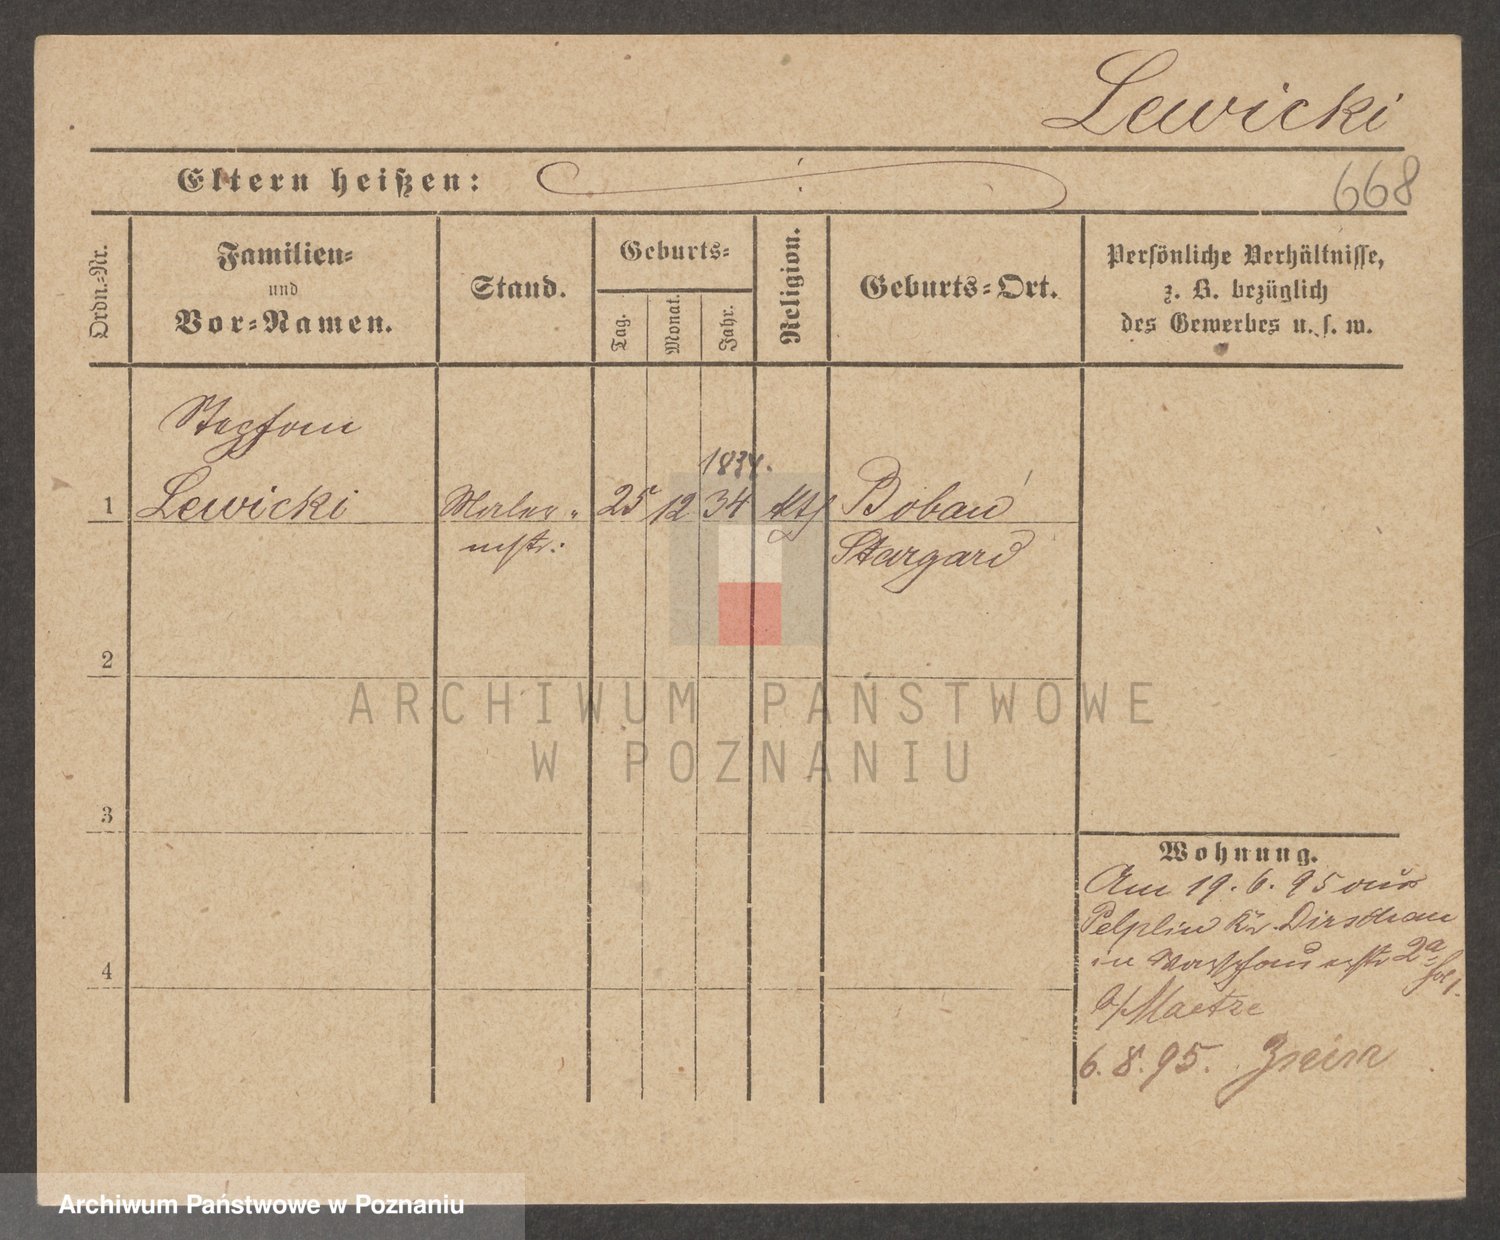 Lewicki
Eltern heißen:
668
Ordn.-Nr.
Familien-
und
Vor-Namen.
Stand.
Geburts-
Tag.
Monat.
Jahr.
Religion.
Geburts-Ort.
Persönliche Verhältnisse,
z. B. bezüglich
des Gewerbes u. s. w.
Stephan
1834.
1 Lewicki Maler- 25 12 34 kth Bobau
mstr. Stargard
2
3
4
Wohnung.
Am 19. 6. 95 aus
Pelplin Kr. Dirschau
in 2a
b/Maetze
6. 8. 95.
ARCHIWUM PAŃSTWOWE
W POZNANIU
Archiwum Państwowe w Poznaniu